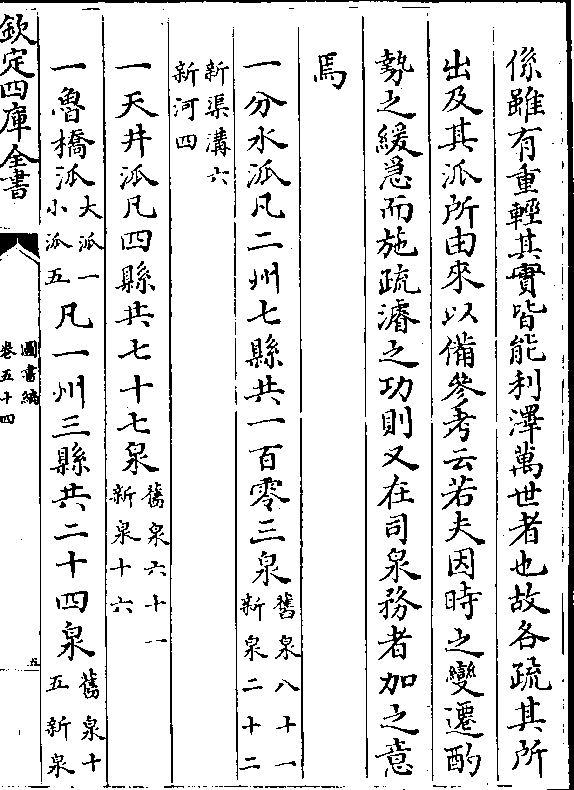 係雖有重輕其實皆能利澤萬世者也故各疏其所
出及其派所由來以備參考云若夫因時之變遷酌
勢之緩急而施疏濬之功則又在司泉務者加之意
焉
一分水派凡二州七縣共一百零三泉舊泉八十一新泉二十二
新渠溝六新河四
一天井派凡四縣共七十七泉舊泉六十一新泉十六
一魯橋派大派一小派五凡一州三縣共二十四泉舊泉十五新泉
欽定四庫全書
圖書編
卷五十四
五